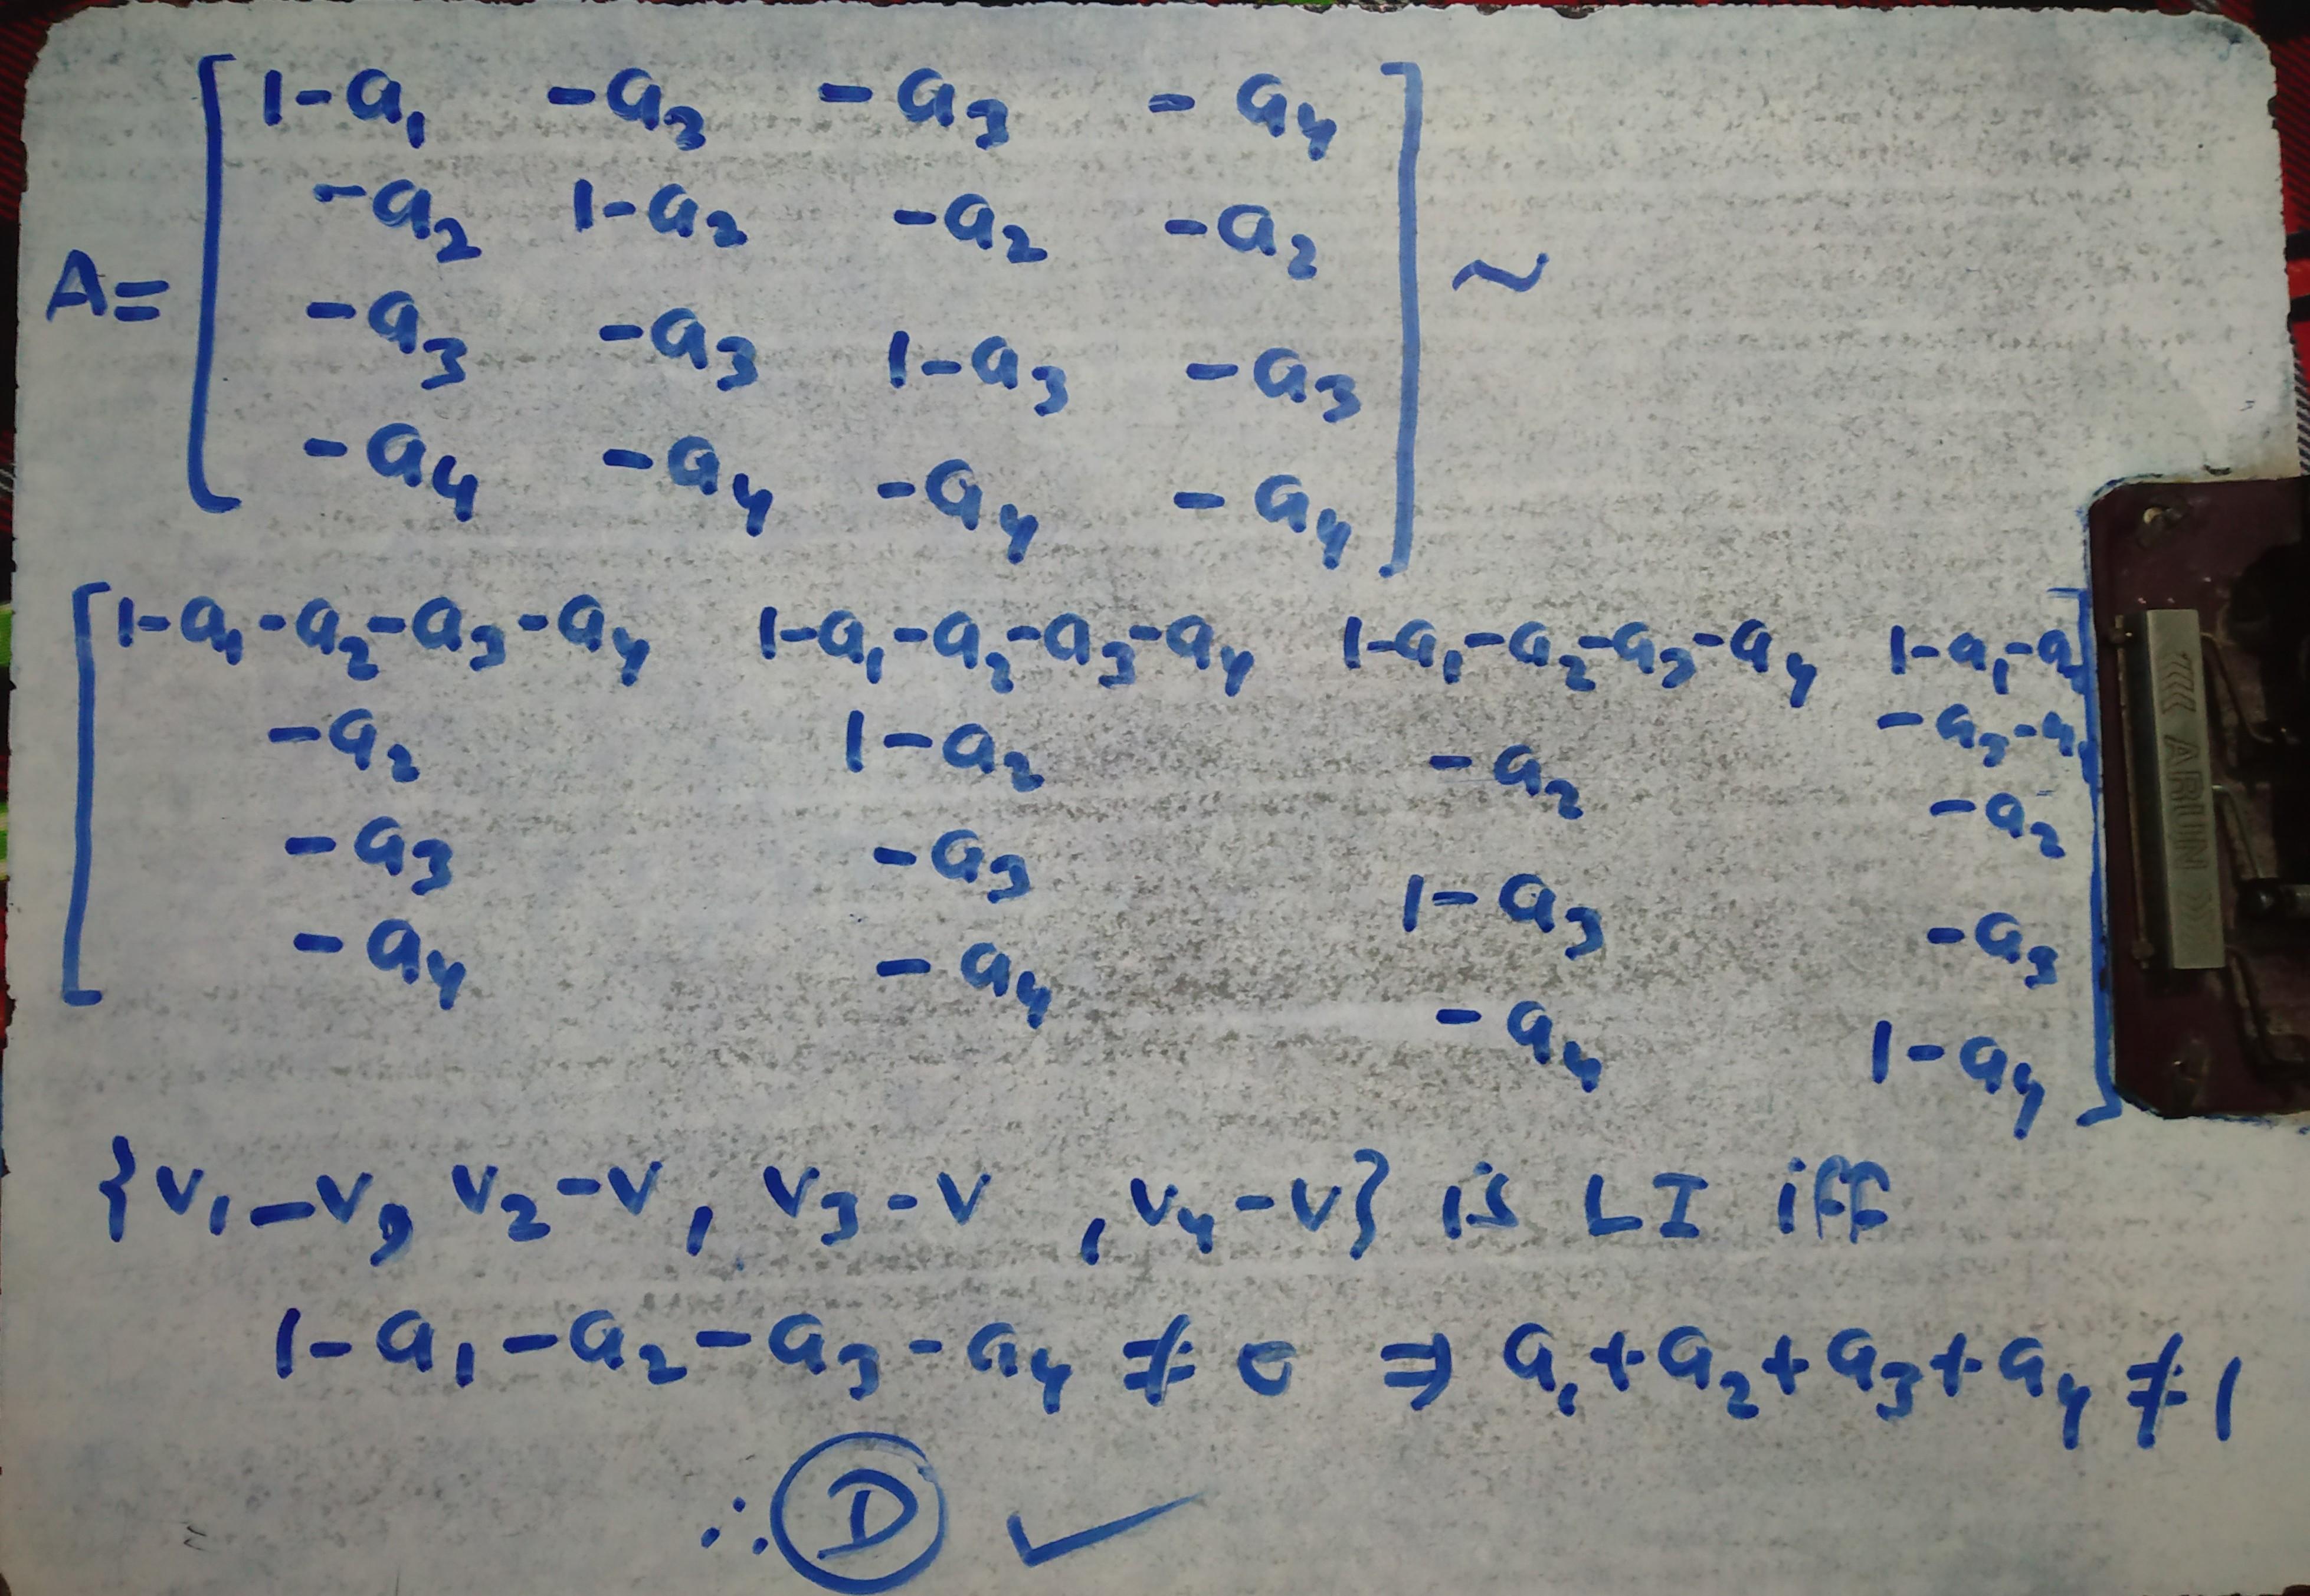 1-a₁ -a₃ -a₃ -a₄
-a₂ 1-a₂ -a₂ -a₂
A= ~
-a₃ -a₃ 1-a₃ -a₃
-a₄ -a₄ -a₄ -a₄
1-a₁-a₂-a₃-a₄ 1-a₁-a₂-a₃-a₄ 1-a₁-a₂-a₃-a₄ 1-a₁-a₂
-a₃-a₄
-a₂ 1-a₂ -a₂ -a₂
-a₃ -a₃ 1-a₃ -a₃
-a₄ -a₄ -a₄ 1-a₄
{v₁-v, v₂-v, v₃-v, v₄-v} is LI iff
1-a₁-a₂-a₃-a₄ ≠ 0 ⇒ a₁+a₂+a₃+a₄ ≠ 1
∴ D ✓
ARUN